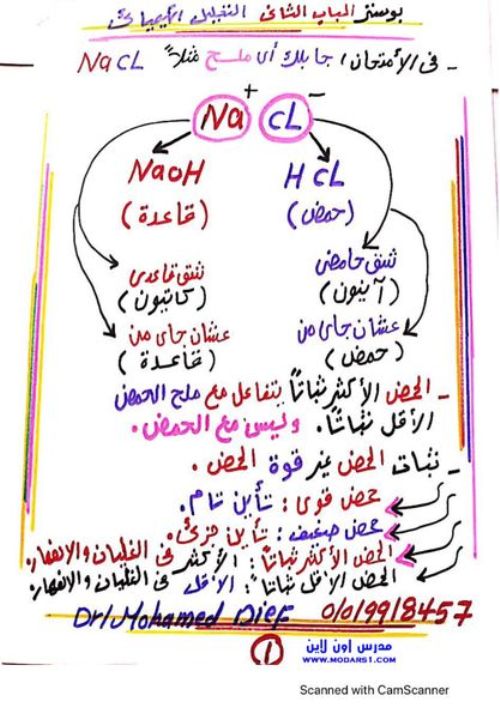 بوستر الباب الثانى التحليل الكيميائى
- فى الأمتحان جابلك أى ملح مثلاً NaCL
Na+ cL-
NaOH HcL
(قاعدة) (حمض)
شق قاعدى شق حامضى
(كاتيون) (آنيون)
عشان جاى من عشان جاى من
(قاعدة) (حمض)
- الحمض الأكثر ثباتاً بتفاعل مع ملح الحمض
الأقل ثباتاً. وليس مع الحمض.
- ثبات الحمض غير قوة الحمض.
حمض قوى: تأين تام.
حمض ضعيف: تأين جزئى.
الحمض الأكثر ثباتاً: الأكثر فى الغليان والانصهار
الحمض الأقل ثباتاً: الأقل فى الغليان والانصهار
Dr/Mohamed Dief 01019918457
1
مدرس اون لاين
WWW.MODARS1.COM
Scanned with CamScanner